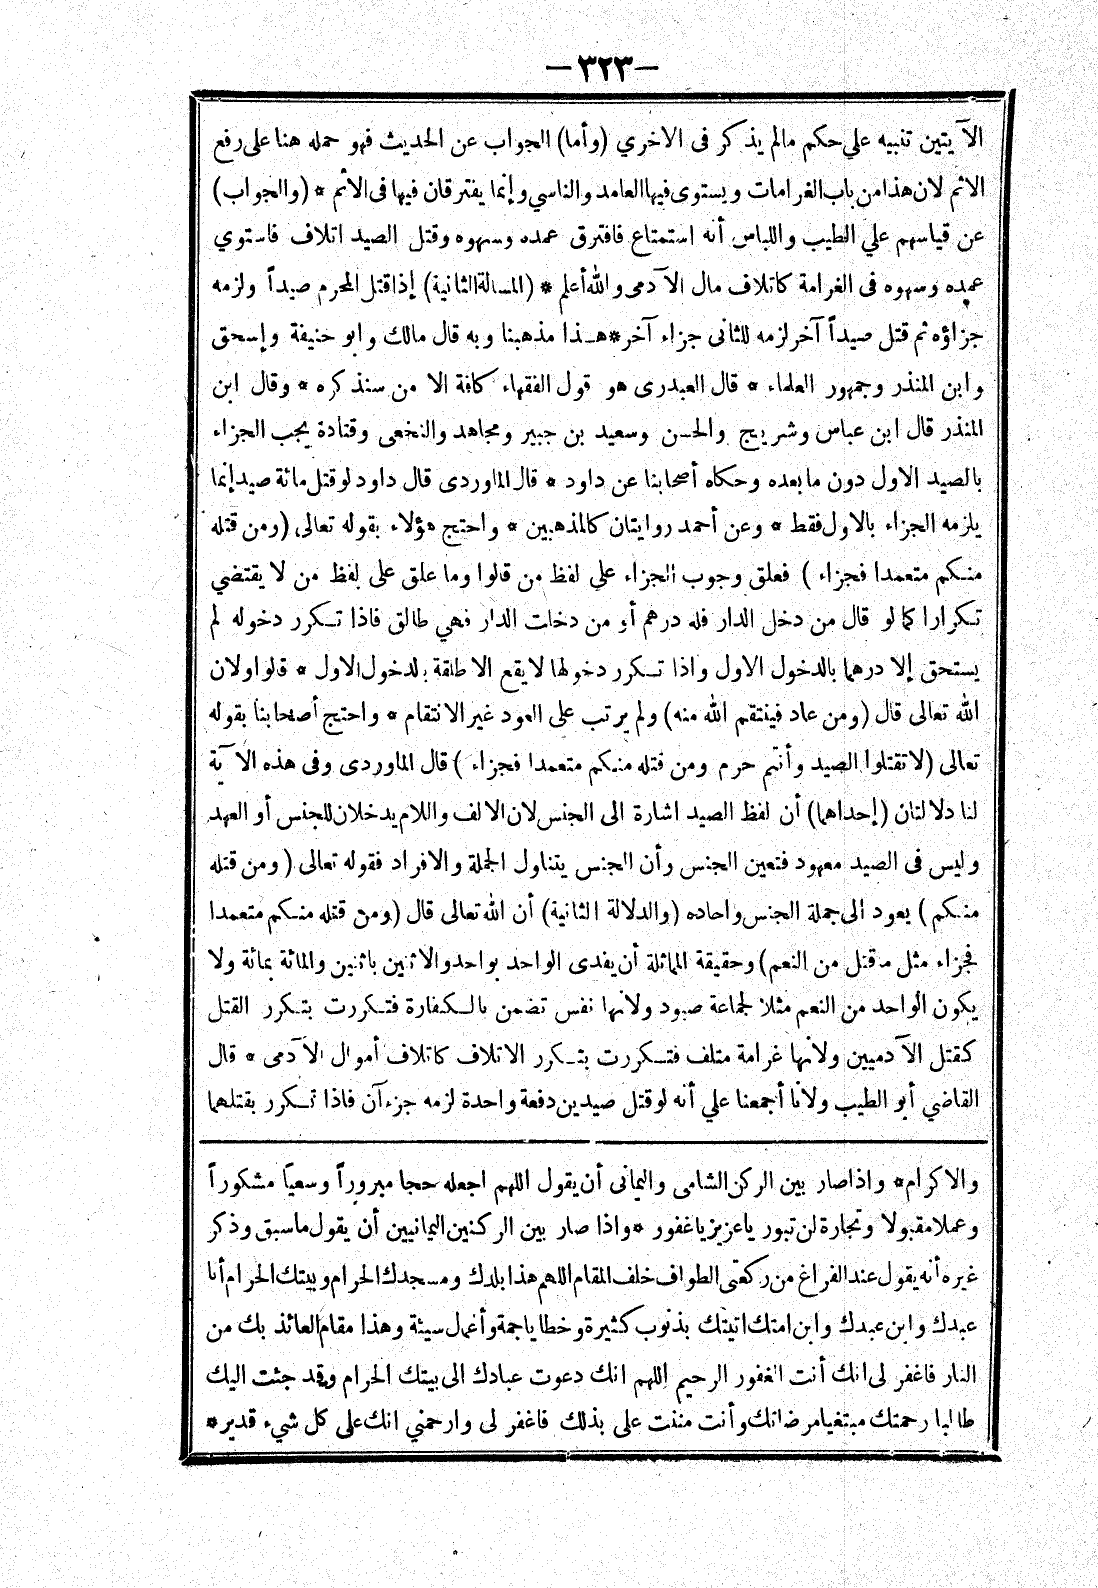 -٣٢٣-
الآيتين تنبيه علي حكم مالم يذكر فى الاخري (وأما) الجواب عن الحديث فهو حمله هنا على رفع
الاثم لان هذا من باب الغرامات ويستوى فيها العامد والناسي وإنما يفترقان فيها فى الأثم * (والجواب)
عن قياسهم علي الطيب واللباس أنه استمتاع فافترق عمده وسهوه وقتل الصيد اتلاف فاستوي
عمده وسهوه فى الغرامة كاتلاف مال الآدمى والله أعلم * (المسألة الثانية) إذا قتل المحرم صيداً ولزمه
جزاؤه ثم قتل صيداً آخر لزمه للثانى جزاء آخر * هـذا مذهبنا وبه قال مالك وابو حنيفة وإسحق
وابن المنذر وجمهور العلماء * قال العبدرى هو قول الفقهاء كافة الا من سنذكره * وقال ابن
المنذر قال ابن عباس وشريح والحسن وسعيد بن جبير ومجاهد والنخعى وقتادة يجب الجزاء
بالصيد الاول دون ما بعده وحكاه أصحابنا عن داود * قال الماوردى قال داود لو قتل مائة صيد إنما
يلزمه الجزاء بالاول فقط * وعن أحمد روايتان كالمذهبين * واحتج هؤلاء بقوله تعالى (ومن قتله
منـكم متعمدا فجزاء ) فعلق وجوب الجزاء علي لفظ من قالوا وما علق على لفظ من لا يقتضي
تـكرارا كما لو قال من دخل الدار فله درهم أو من دخلت الدار فهي طالق فاذا تـكرر دخوله لم
يستحق إلا درهما بالدخول الاول واذا تـكرر دخولها لا يقع الا طلقة بالدخول الاول * قالوا ولان
الله تعالى قال (ومن عاد فينتقم الله منه) ولم يرتب على العود غير الانتقام * واحتج أصحابنا بقوله
تعالى (لا تقتلوا الصيد وأنتم حرم ومن قتله منـكم متعمدا فجزاء ) قال الماوردى وفى هذه الآية
لنا دلالتان (إحداهما) أن لفظ الصيد اشارة الى الجنس لان الالف واللام يدخلان للجنس أو العهد
وليس فى الصيد معهود فتعين الجنس وأن الجنس يتناول الجملة والافراد فقوله تعالى ( ومن قتله
منـكم ) يعود الى جملة الجنس واحاده (والدلالة الثانية) أن الله تعالى قال (ومن قتله منـكم متعمدا
فجزاء مثل ما قتل من النعم) وحقيقة المماثلة أن يفدى الواحد بواحد والاثنين باثنين والمائة بمائة ولا
يكون الواحد من النعم مثلا لجماعة صيود ولانها نفس تضمن بالـكفارة فتـكررت بتـكرر القتل
كقتل الآدميين ولانها غرامة متلف فتـكررت بتـكرر الاتلاف كاتلاف أموال الآدمى * قال
القاضي أبو الطيب ولانا أجمعنا علي أنه لو قتل صيدين دفعة واحدة لزمه جزءآن فاذا تـكرر بقتلهما
والاكرام * واذا صار بين الركن الشامى واليمانى أن يقول اللهم اجعله حجا مبروراً وسعياً مشكوراً
وعملا مقبولا وتجارة لن تبور ياعزيز ياغفور * واذا صار بين الركنين اليمانيين أن يقول ماسبق وذكر
غيره أنه يقول عند الفراغ من ركعتى الطواف خلف المقام اللهم هذا بلدك ومسجدك الحرام وبيتك الحرام أنا
عبدك وابن عبدك وابن امتك اتيتك بذنوب كثيرة وخطايا جمة وأعمال سيئة وهذا مقام العائذ بك من
النار فاغفر لى انك أنت الغفور الرحيم اللهم انك دعوت عبادك الى بيتك الحرام وقد جئت اليك
طالبا رحمتك مبتغيا مرضاتك وأنت مننت على بذلك فاغفر لى وارحمني انك على كل شيء قدير *